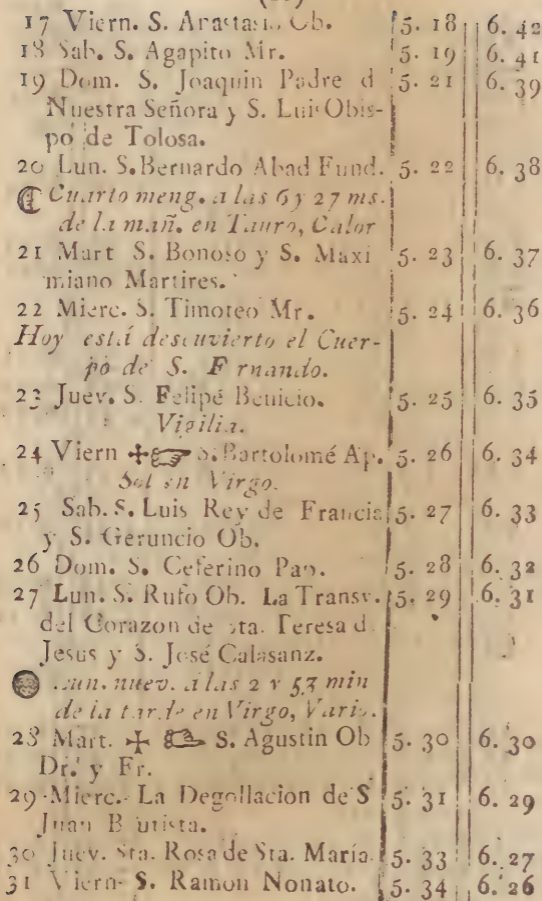 17 Viern. S. Anastasio Ob. 5. 18 6. 42
18 Sab. S. Agapito Mr. 5. 19 6. 41
19 Dom. S. Joaquin Padre d 5. 21 6. 39
Nuestra Señora y S. Luis Obis-
po de Tolosa.
20 Lun. S. Bernardo Abad Fund. 5. 22 6. 38
Cuarto meng. a las 6 y 27 ms.
de la mañ. en Tauro, Calor
21 Mart S. Bonoso y S. Maxi 5. 23 6. 37
miano Martires.
22 Mierc. S. Timoteo Mr. 5. 24 6. 36
Hoy está descuvierto el Cuer-
po de S. F rnando.
23 Juev. S. Felipé Benicio. 5. 25 6. 35
Vigilia.
24 Viern ✢☞ S. Bartolomé Ap. 5. 26 6. 34
Sol en Virgo.
25 Sab. S. Luis Rey de Francia 5. 27 6. 33
y S. Geruncio Ob.
26 Dom. S. Ceferino Pap. 5. 28 6. 32
27 Lun. S. Rufo Ob. La Transv. 5. 29 6. 31
del Corazon de Sta. Teresa d
Jesus y S. José Calasanz.
Lun. nuev. á las 2 y 53 min
de la tarde en Virgo, Vario.
28 Mart. ✢ ☞ S. Agustin Ob 5. 30 6. 30
Dr. y Fr.
29 Mierc. La Degollacion de S 5. 31 6. 29
Juan B utista.
30 Juev. Sta. Rosa de Sta. María. 5. 33 6. 27
31 Viern. S. Ramon Nonato. 5. 34 6. 26